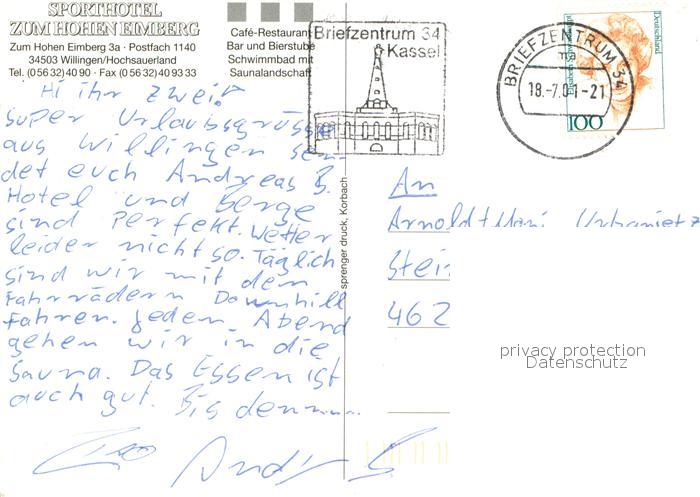 SPORTHOTEL
ZUM HOHEN EIMBERG
Zum Hohen Eimberg 3a · Postfach 1140
34503 Willingen/Hochsauerland
Tel. (0 56 32) 40 90 · Fax (0 56 32) 40 93 33
Café-Restaurant
Bar und Bierstube
Schwimmbad mit
Saunalandschaft
Briefzentrum 34
Kassel
BRIEFZENTRUM 34
mg
18.-7.01-21
Deutschland
100
Hi ihr zwei!
super Urlaubsgrüsse
aus Willingen sen-
det euch Andreas B.
Hotel und Berge
sind Perfekt. Wetter
leider nicht so. Täglich
sind wir mit den
Fahrrädern Downhill
fahren. Jeden Abend
gehen wir in die
Sauna. Das Essen ist
auch gut. Bis denn....
sprenger druck, Korbach
An
Arnold + Mani Urbanietz
Stei
462
privacy protection
Datenschutz